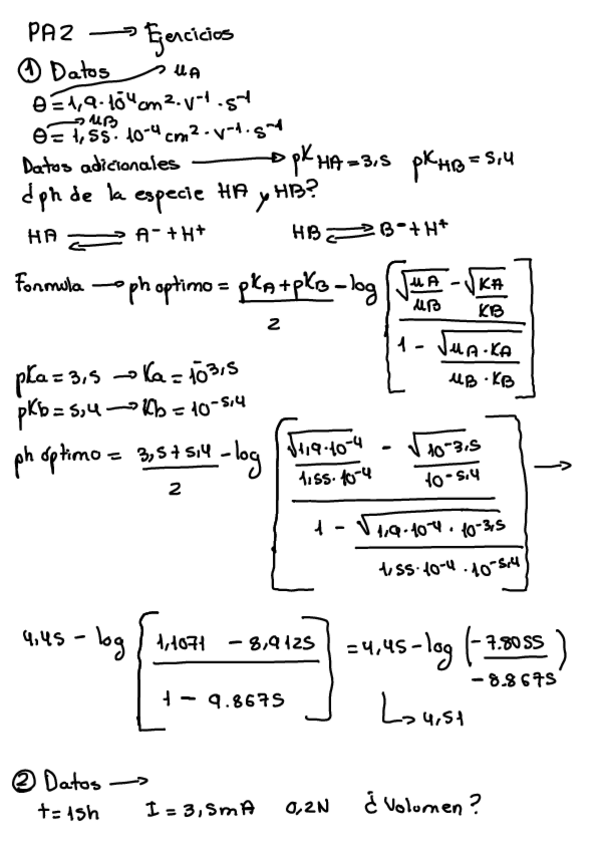 PA2 → Ejercicios
① Datos → uA
θ = 1,9·10⁻⁴ cm²·V⁻¹·s⁻¹
→ uB
θ = 1,55·10⁻⁴ cm²·V⁻¹·s⁻¹
Datos adicionales → pK HA = 3,5 pK HB = 5,4
d ph de la especie HA y HB?
HA ⇌ A⁻ + H⁺ HB ⇌ B⁻ + H⁺
Formula → ph optimo = (pKA + pKB)/2 - log [(√(uA/uB) - √(KA/KB)) / (1 - √(uA·KA / uB·KB))]
pKa = 3,5 → Ka = 10⁻³,⁵
pKb = 5,4 → Kb = 10⁻⁵,⁴
ph óptimo = (3,5 + 5,4)/2 - log [(√(1,9·10⁻⁴ / 1,55·10⁻⁴) - √(10⁻³,⁵ / 10⁻⁵,⁴)) / (1 - √(1,9·10⁻⁴ · 10⁻³,⁵ / 1,55·10⁻⁴ · 10⁻⁵,⁴))] →
4,45 - log [(1,1071 - 8,9125) / (1 - 9.8675)] = 4,45 - log (-7.8055 / -8.8675)
↳ 4,51
② Datos →
t = 15h I = 3,5mA 0,2N ¿Volumen?